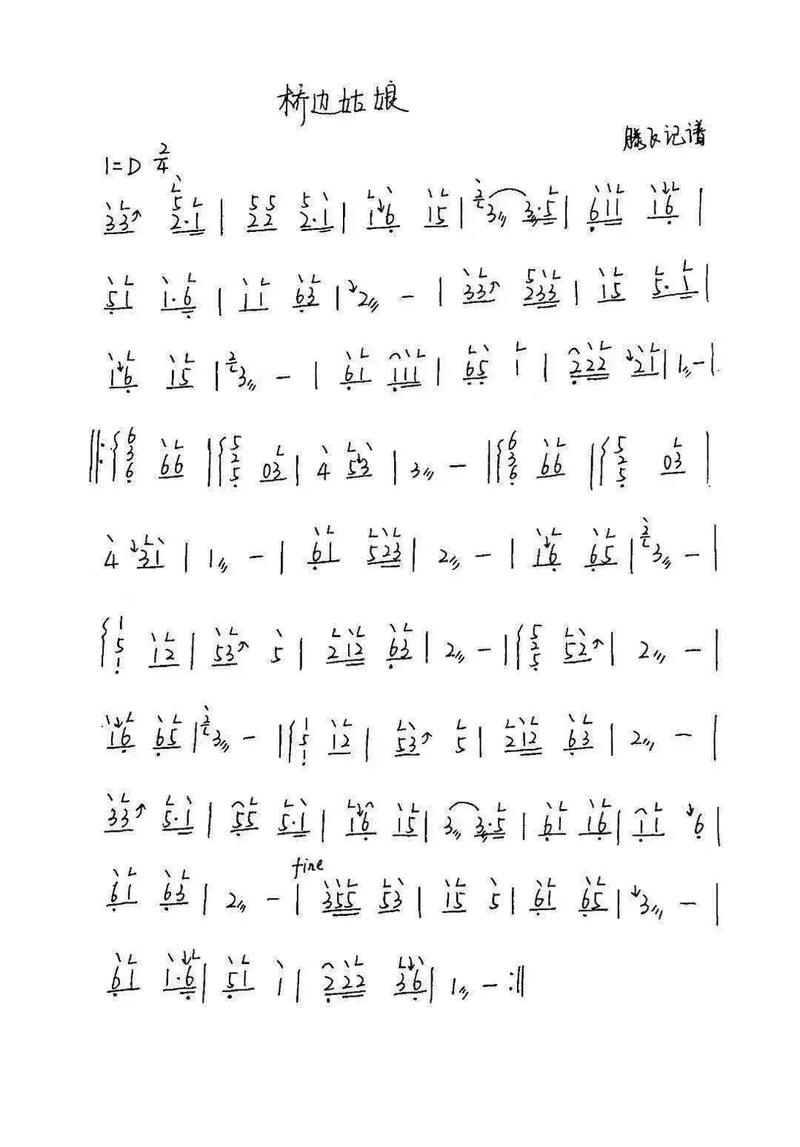 桥边姑娘
滕飞记谱
1=D 2/4
33 2·1 | 22 2·1 | 16 15 | 3 3·5 | 611 16 |
51 1·6 | 11 63 | 2 - | 33 233 | 15 5·1 |
16 15 | 3 - | 61 111 | 65 1 | 222 21 | 1 - |
‖: 636 66 | 525 03 | 4 53 | 3 - | 636 66 | 525 03 |
4 31 | 1 - | 61 523 | 2 - | 16 65 | 3 - |
151 12 | 53 5 | 212 63 | 2 - | 525 52 | 2 - |
16 65 | 3 - | 151 12 | 53 5 | 212 63 | 2 - |
33 5·1 | 55 5·1 | 16 15 | 3 3·5 | 61 16 | 11 6 |
61 63 | 2 - | fine 355 53 | 15 5 | 61 65 | 3 - |
61 1·6 | 51 1 | 222 36 | 1 - :‖